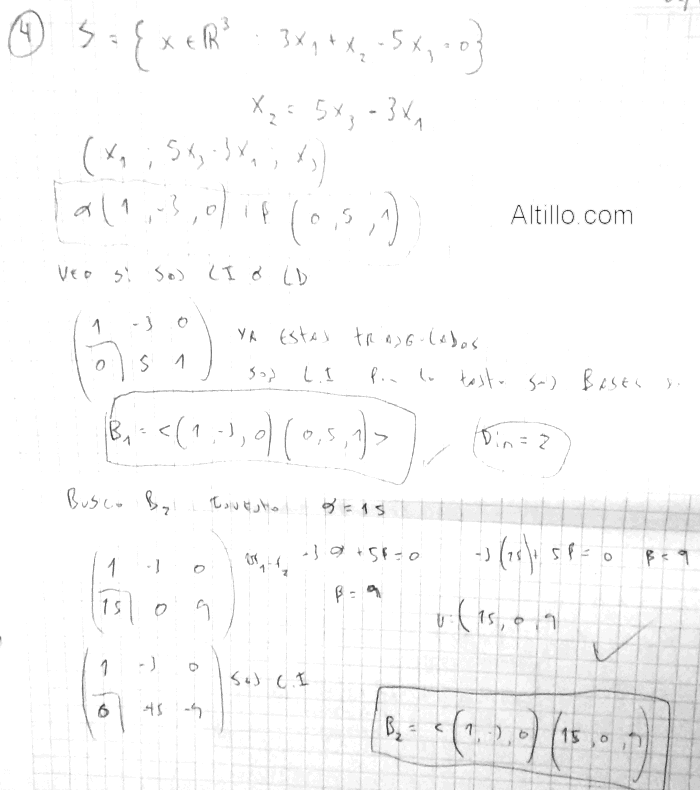 4) S = { x ∈ R³ · 3x₁ + x₂ - 5x₃ = 0 }
x₂ = 5x₃ - 3x₁
(x₁ ; 5x₃ - 3x₁ ; x₃)
α(1, -3, 0) + β(0, 5, 1)
Altillo.com
Veo si son LI o LD
(1 -3 0
0 5 1)
YA ESTAN
son L.I son BASES
B₁ = <(1, -3, 0)(0, 5, 1)>
Dim = 2
Busco B₂ α = 15
(1 -3 0
15 0 9)
-3α + 5β = 0
-3(15) + 5β = 0 β = 9
β = 9
(15, 0, 9
(1 -3 0
0 -45 -9)
son L.I
B₂ = <(1, -3, 0)(15, 0, 9)